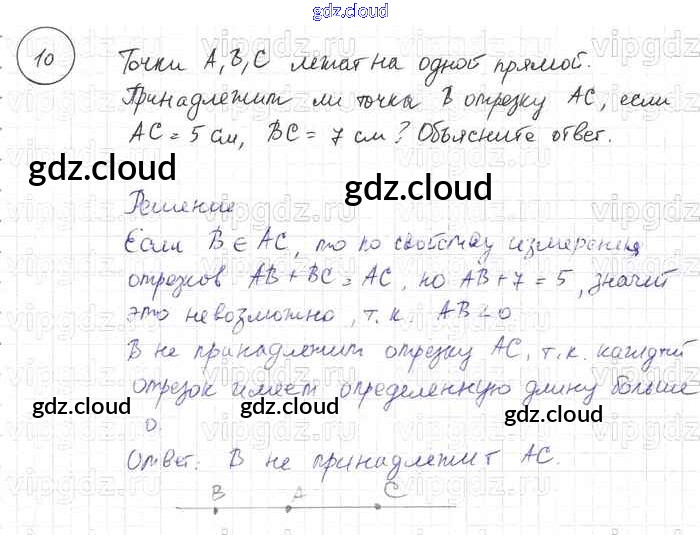 gdz.cloud
10 Точки A, B, C лежат на одной прямой.
Принадлежит ли точка B отрезку AC, если
AC = 5 см, BC = 7 см? Объясните ответ.
gdz.cloud
gdz.cloud
Решение
Если B ∈ AC, то по свойству измерения
отрезков AB + BC = AC, но AB + 7 = 5, значит
это невозможно, т.к. AB < 0
B не принадлежит отрезку AC, т.к. каждый
отрезок имеет определенную длину больше
gdz.cloud gdz.cloud gdz.cloud
0.
Ответ: B не принадлежит AC.
B A C